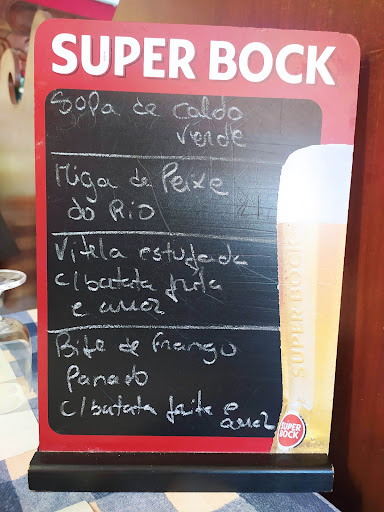 SUPER BOCK
Sopa de caldo
verde
Miga de Peixe
do Rio
Vitela estufada
c/batata frita
e arroz
Bife de Frango
Panado
c/batata frita e
arroz
SUPER BOCK
SUPER
BOCK